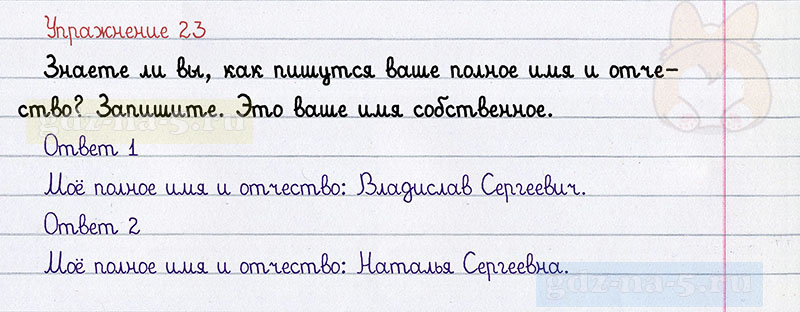 Упражнение 23
Знаете ли вы, как пишутся ваше полное имя и отче-
ство? Запишите. Это ваше имя собственное.
gdz-na-5.ru
Ответ 1
Моё полное имя и отчество: Владислав Сергеевич.
Ответ 2
Моё полное имя и отчество: Наталья Сергеевна.
gdz-na-5.ru